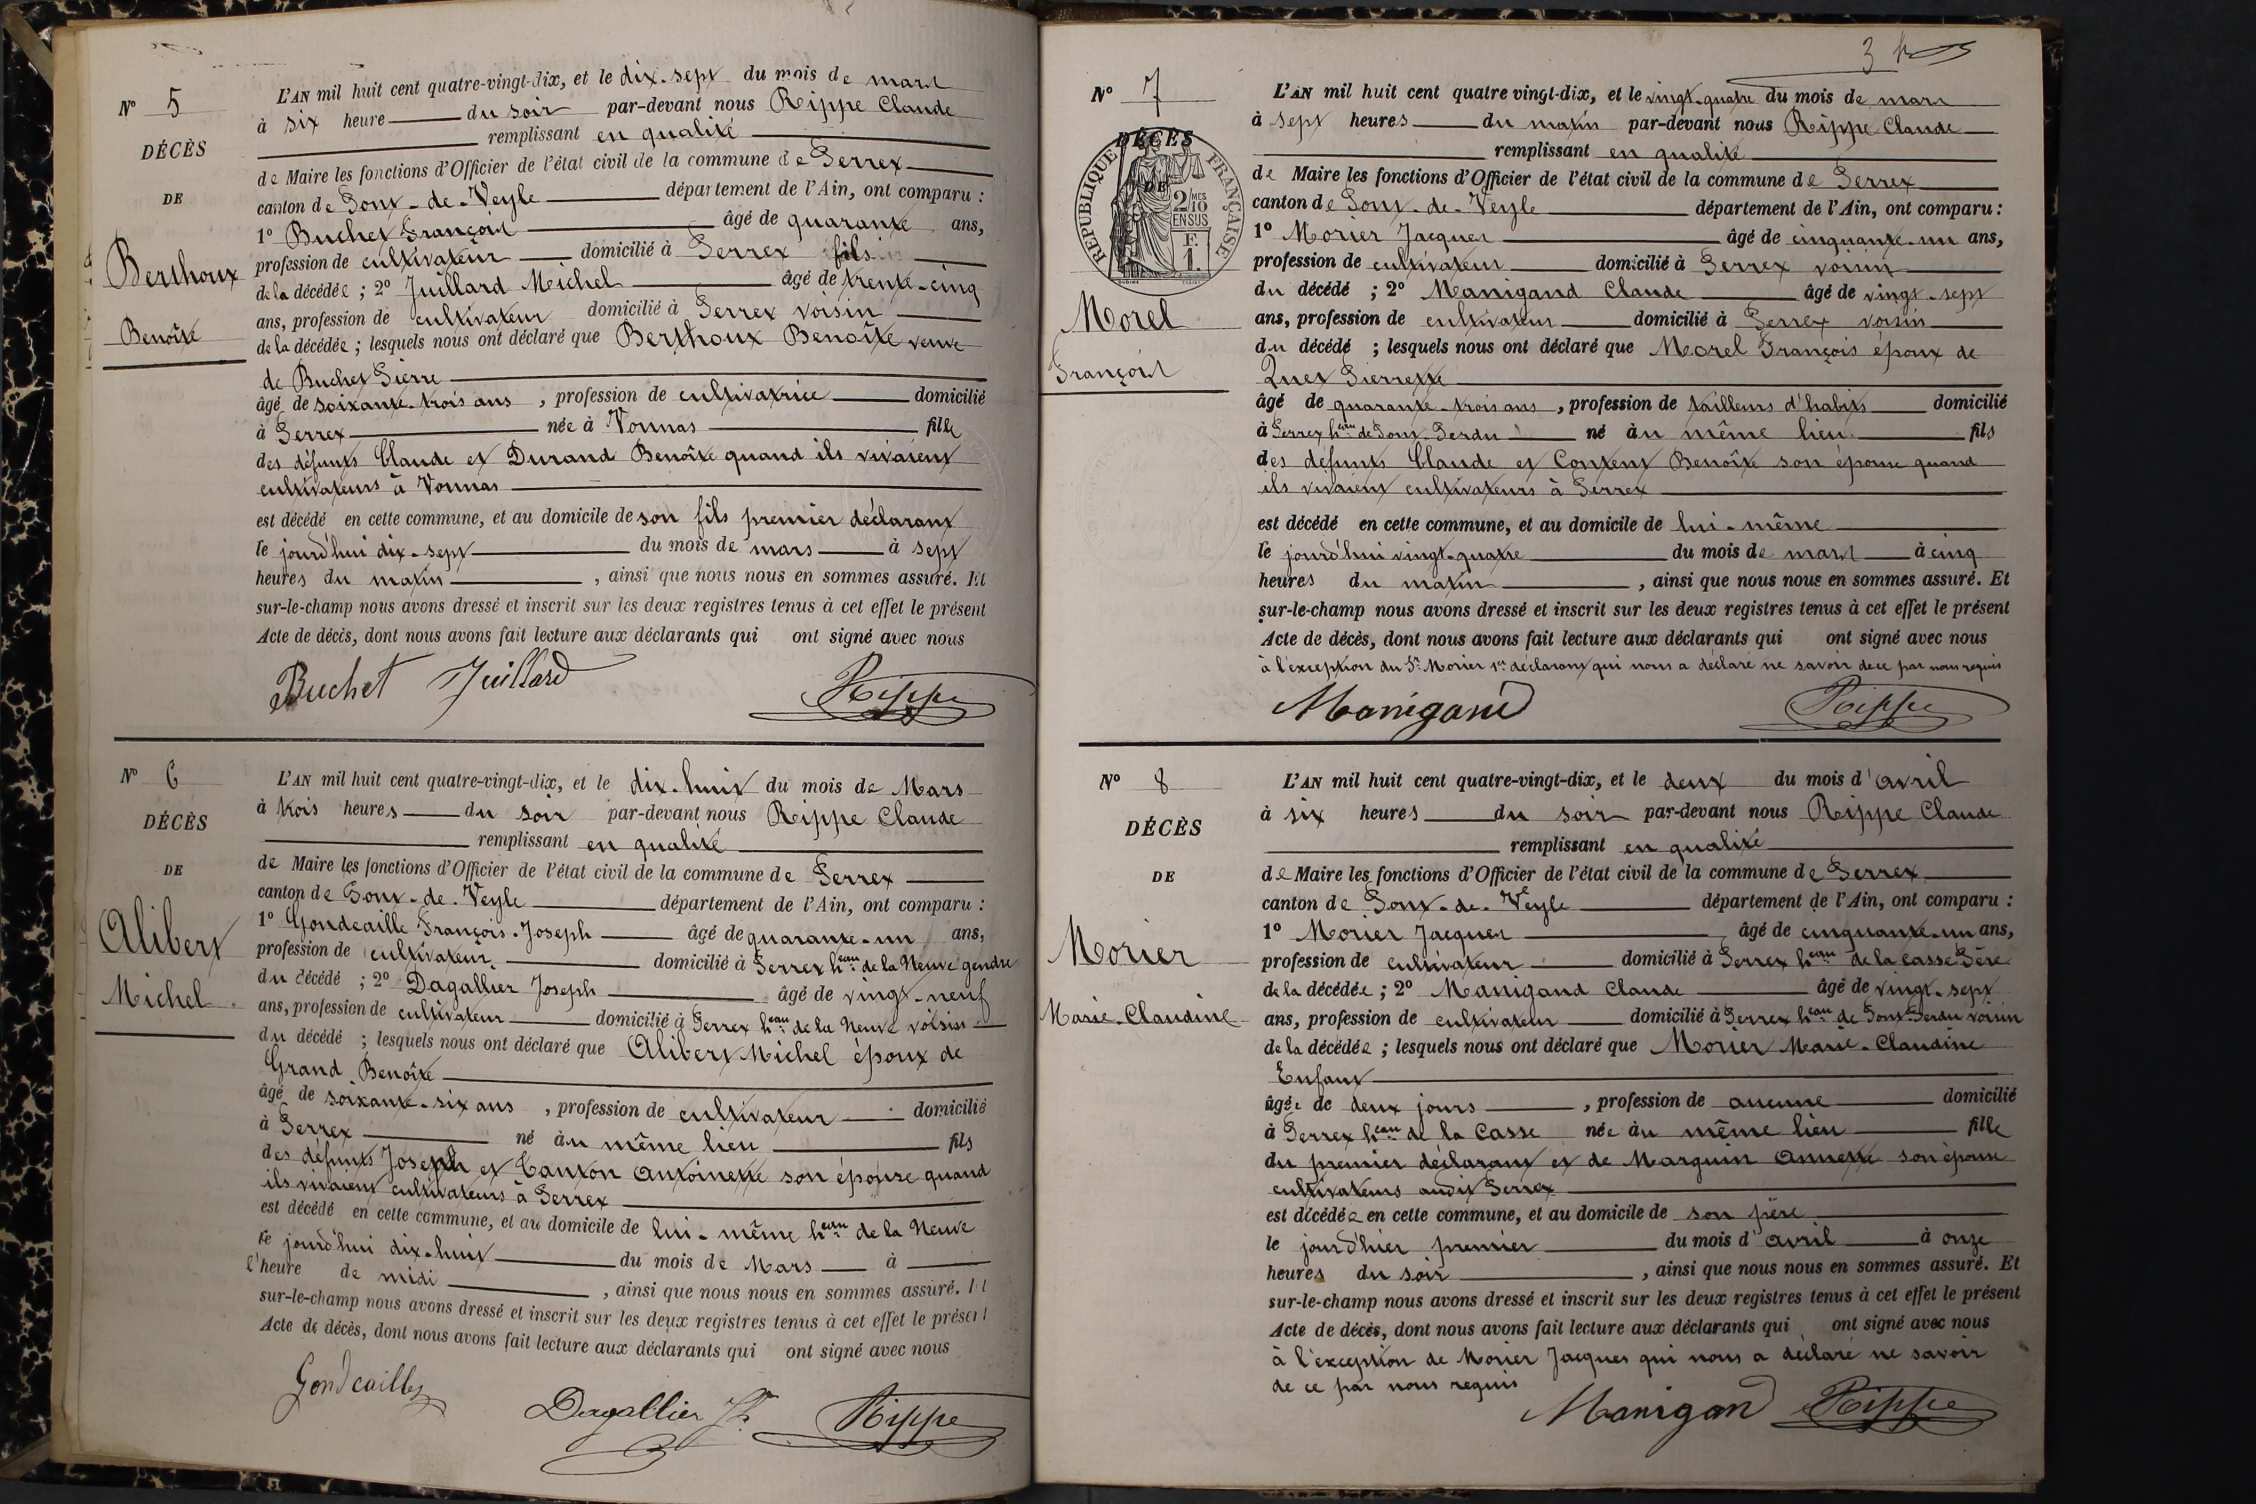 N° 5
DÉCÈS
DE
Berthoux
Benoîte
L'AN mil huit cent quatre-vingt-dix, et le dix-sept du mois de mars
à six heure du soir par-devant nous Rippe Claude
remplissant en qualité
de Maire les fonctions d'Officier de l'état civil de la commune de Perrex
canton de Pont-de-Veyle département de l'Ain, ont comparu :
1° Buchet François âgé de quarante ans,
profession de cultivateur domicilié à Perrex fils
de la décédée ; 2° Juillard Michel âgé de trente-cinq
ans, profession de cultivateur domicilié à Perrex voisin
de la décédée ; lesquels nous ont déclaré que Berthoux Benoîte veuve
de Buchet Pierre
âgé de soixante-trois ans , profession de cultivatrice domicilié
à Perrex née à Vonnas fille
des défunts Claude et Durand Benoîte quand ils vivaient
cultivateurs à Vonnas
est décédé en cette commune, et au domicile de son fils premier déclarant
le jourd'hui dix-sept du mois de mars à sept
heures du matin , ainsi que nous nous en sommes assuré. Et
sur-le-champ nous avons dressé et inscrit sur les deux registres tenus à cet effet le présent
Acte de décès, dont nous avons fait lecture aux déclarants qui ont signé avec nous
Buchet Juillard Rippe
N° 6
DÉCÈS
DE
Alibert
Michel
L'AN mil huit cent quatre-vingt-dix, et le dix-huit du mois de Mars
à trois heures du soir par-devant nous Rippe Claude
remplissant en qualité
de Maire les fonctions d'Officier de l'état civil de la commune de Perrex
canton de Pont-de-Veyle département de l'Ain, ont comparu :
1° Gondcaille François-Joseph âgé de quarante-un ans,
profession de cultivateur domicilié à Perrex heau de la Neuve gendre
du décédé ; 2° Dagallier Joseph âgé de vingt-neuf
ans, profession de cultivateur domicilié à Perrex heau de la Neuve voisin
du décédé ; lesquels nous ont déclaré que Alibert Michel époux de
Grand Benoîte
âgé de soixante-six ans , profession de cultivateur domicilié
à Perrex né àu même lieu fils
des défunts Joseph et Tanton Antoinette son épouse quand
ils vivaient cultivateurs à Perrex
est décédé en cette commune, et au domicile de lui-même heau de la Neuve
le jourd'hui dix-huit du mois de Mars à
l'heure de midi , ainsi que nous nous en sommes assuré. Et
sur-le-champ nous avons dressé et inscrit sur les deux registres tenus à cet effet le présent
Acte de décès, dont nous avons fait lecture aux déclarants qui ont signé avec nous
Gondcaille Dagallier Jh Rippe
3
N° 7
DÉCÈS
DE
RÉPUBLIQUE FRANÇAISE
2/10 MES
EN SUS
F.
1.
Morel
François
L'AN mil huit cent quatre vingt-dix, et le vingt-quatre du mois de mars
à sept heures du matin par-devant nous Rippe Claude
remplissant en qualité
de Maire les fonctions d'Officier de l'état civil de la commune de Perrex
canton de Pont-de-Veyle département de l'Ain, ont comparu :
1° Morier Jacques âgé de cinquante-un ans,
profession de cultivateur domicilié à Perrex voisin
du décédé ; 2° Manigand Claude âgé de vingt-sept
ans, profession de cultivateur domicilié à Perrex voisin
du décédé ; lesquels nous ont déclaré que Morel François époux de
Quet Pierrette
âgé de quarante-trois ans , profession de tailleurs d'habits domicilié
à Perrex heau de Pont-Perdu né àu même lieu fils
des défunts Claude et Content Benoîte son épouse quand
ils vivaient cultivateurs à Perrex
est décédé en cette commune, et au domicile de lui-même
le jourd'hui vingt-quatre du mois de mars à cinq
heures du matin , ainsi que nous nous en sommes assuré. Et
sur-le-champ nous avons dressé et inscrit sur les deux registres tenus à cet effet le présent
Acte de décès, dont nous avons fait lecture aux déclarants qui ont signé avec nous
à l'exception du Sr Morier 1er déclarant qui nous a déclaré ne savoir de ce par nous requis
Manigand Rippe
N° 8
DÉCÈS
DE
Morier
Marie-Claudine
L'AN mil huit cent quatre-vingt-dix, et le deux du mois d'avril
à six heures du soir par-devant nous Rippe Claude
remplissant en qualité
de Maire les fonctions d'Officier de l'état civil de la commune de Perrex
canton de Pont-de-Veyle département de l'Ain, ont comparu :
1° Morier Jacques âgé de cinquante-un ans,
profession de cultivateur domicilié à Perrex heau de la Casse Père
de la décédée ; 2° Manigand Claude âgé de vingt-sept
ans, profession de cultivateur domicilié à Perrex heau de Pont-Perdu voisin
de la décédée ; lesquels nous ont déclaré que Morier Marie-Claudine
Enfant
âgée de deux jours , profession de aucune domicilié
à Perrex heau de la Casse née àu même lieu fille
du premier déclarant et de Marguin Annette son épouse
cultivateurs audit Perrex
est décédée en cette commune, et au domicile de son père
le jourd'hier premier du mois d'avril à onze
heures du soir , ainsi que nous nous en sommes assuré. Et
sur-le-champ nous avons dressé et inscrit sur les deux registres tenus à cet effet le présent
Acte de décès, dont nous avons fait lecture aux déclarants qui ont signé avec nous
à l'exception de Morier Jacques qui nous a déclaré ne savoir
de ce par nous requis
Manigand Rippe